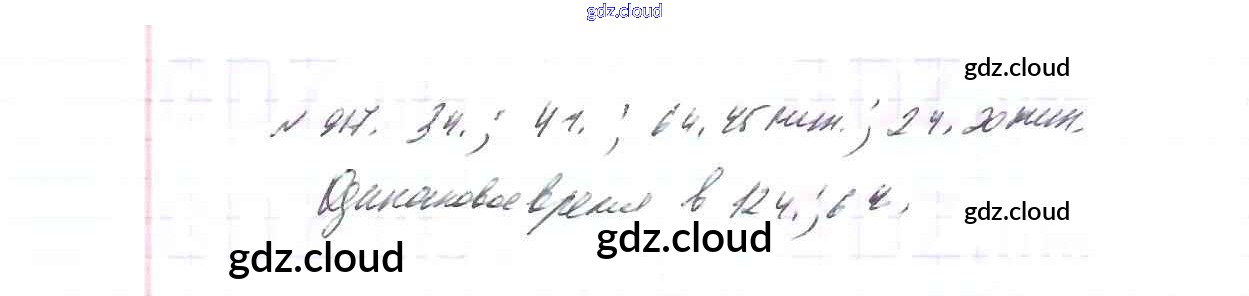 gdz.cloud
gdz.cloud
№ 917. 3 ч.; 4 ч.; 6 ч. 45 мин.; 2 ч. 20 мин.
Одинаковое время в 12 ч.; 6 ч.
gdz.cloud
gdz.cloud
gdz.cloud